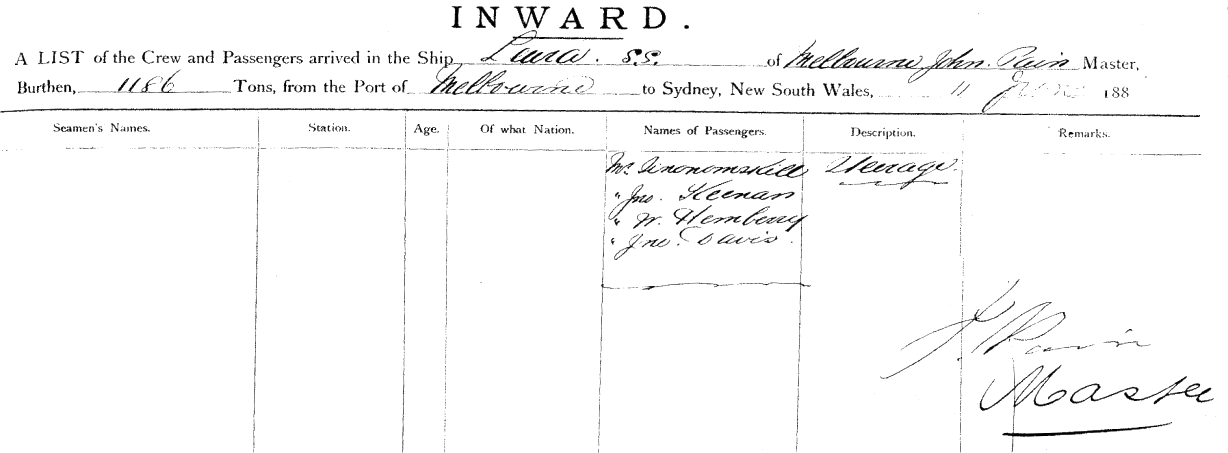 INWARD.
A LIST of the Crew and Passengers arrived in the Ship Laura. S.S. of Melbourne John. Pain Master,
Burthen, 1186 Tons, from the Port of Melbourne to Sydney, New South Wales, 11 June 188
Seamen's Names. Station. Age. Of what Nation. Names of Passengers. Description. Remarks.
Mr Steerage.
" Jno. Keenan
" W. Hemberry
" Jno. Davis.
J. Pain
Master